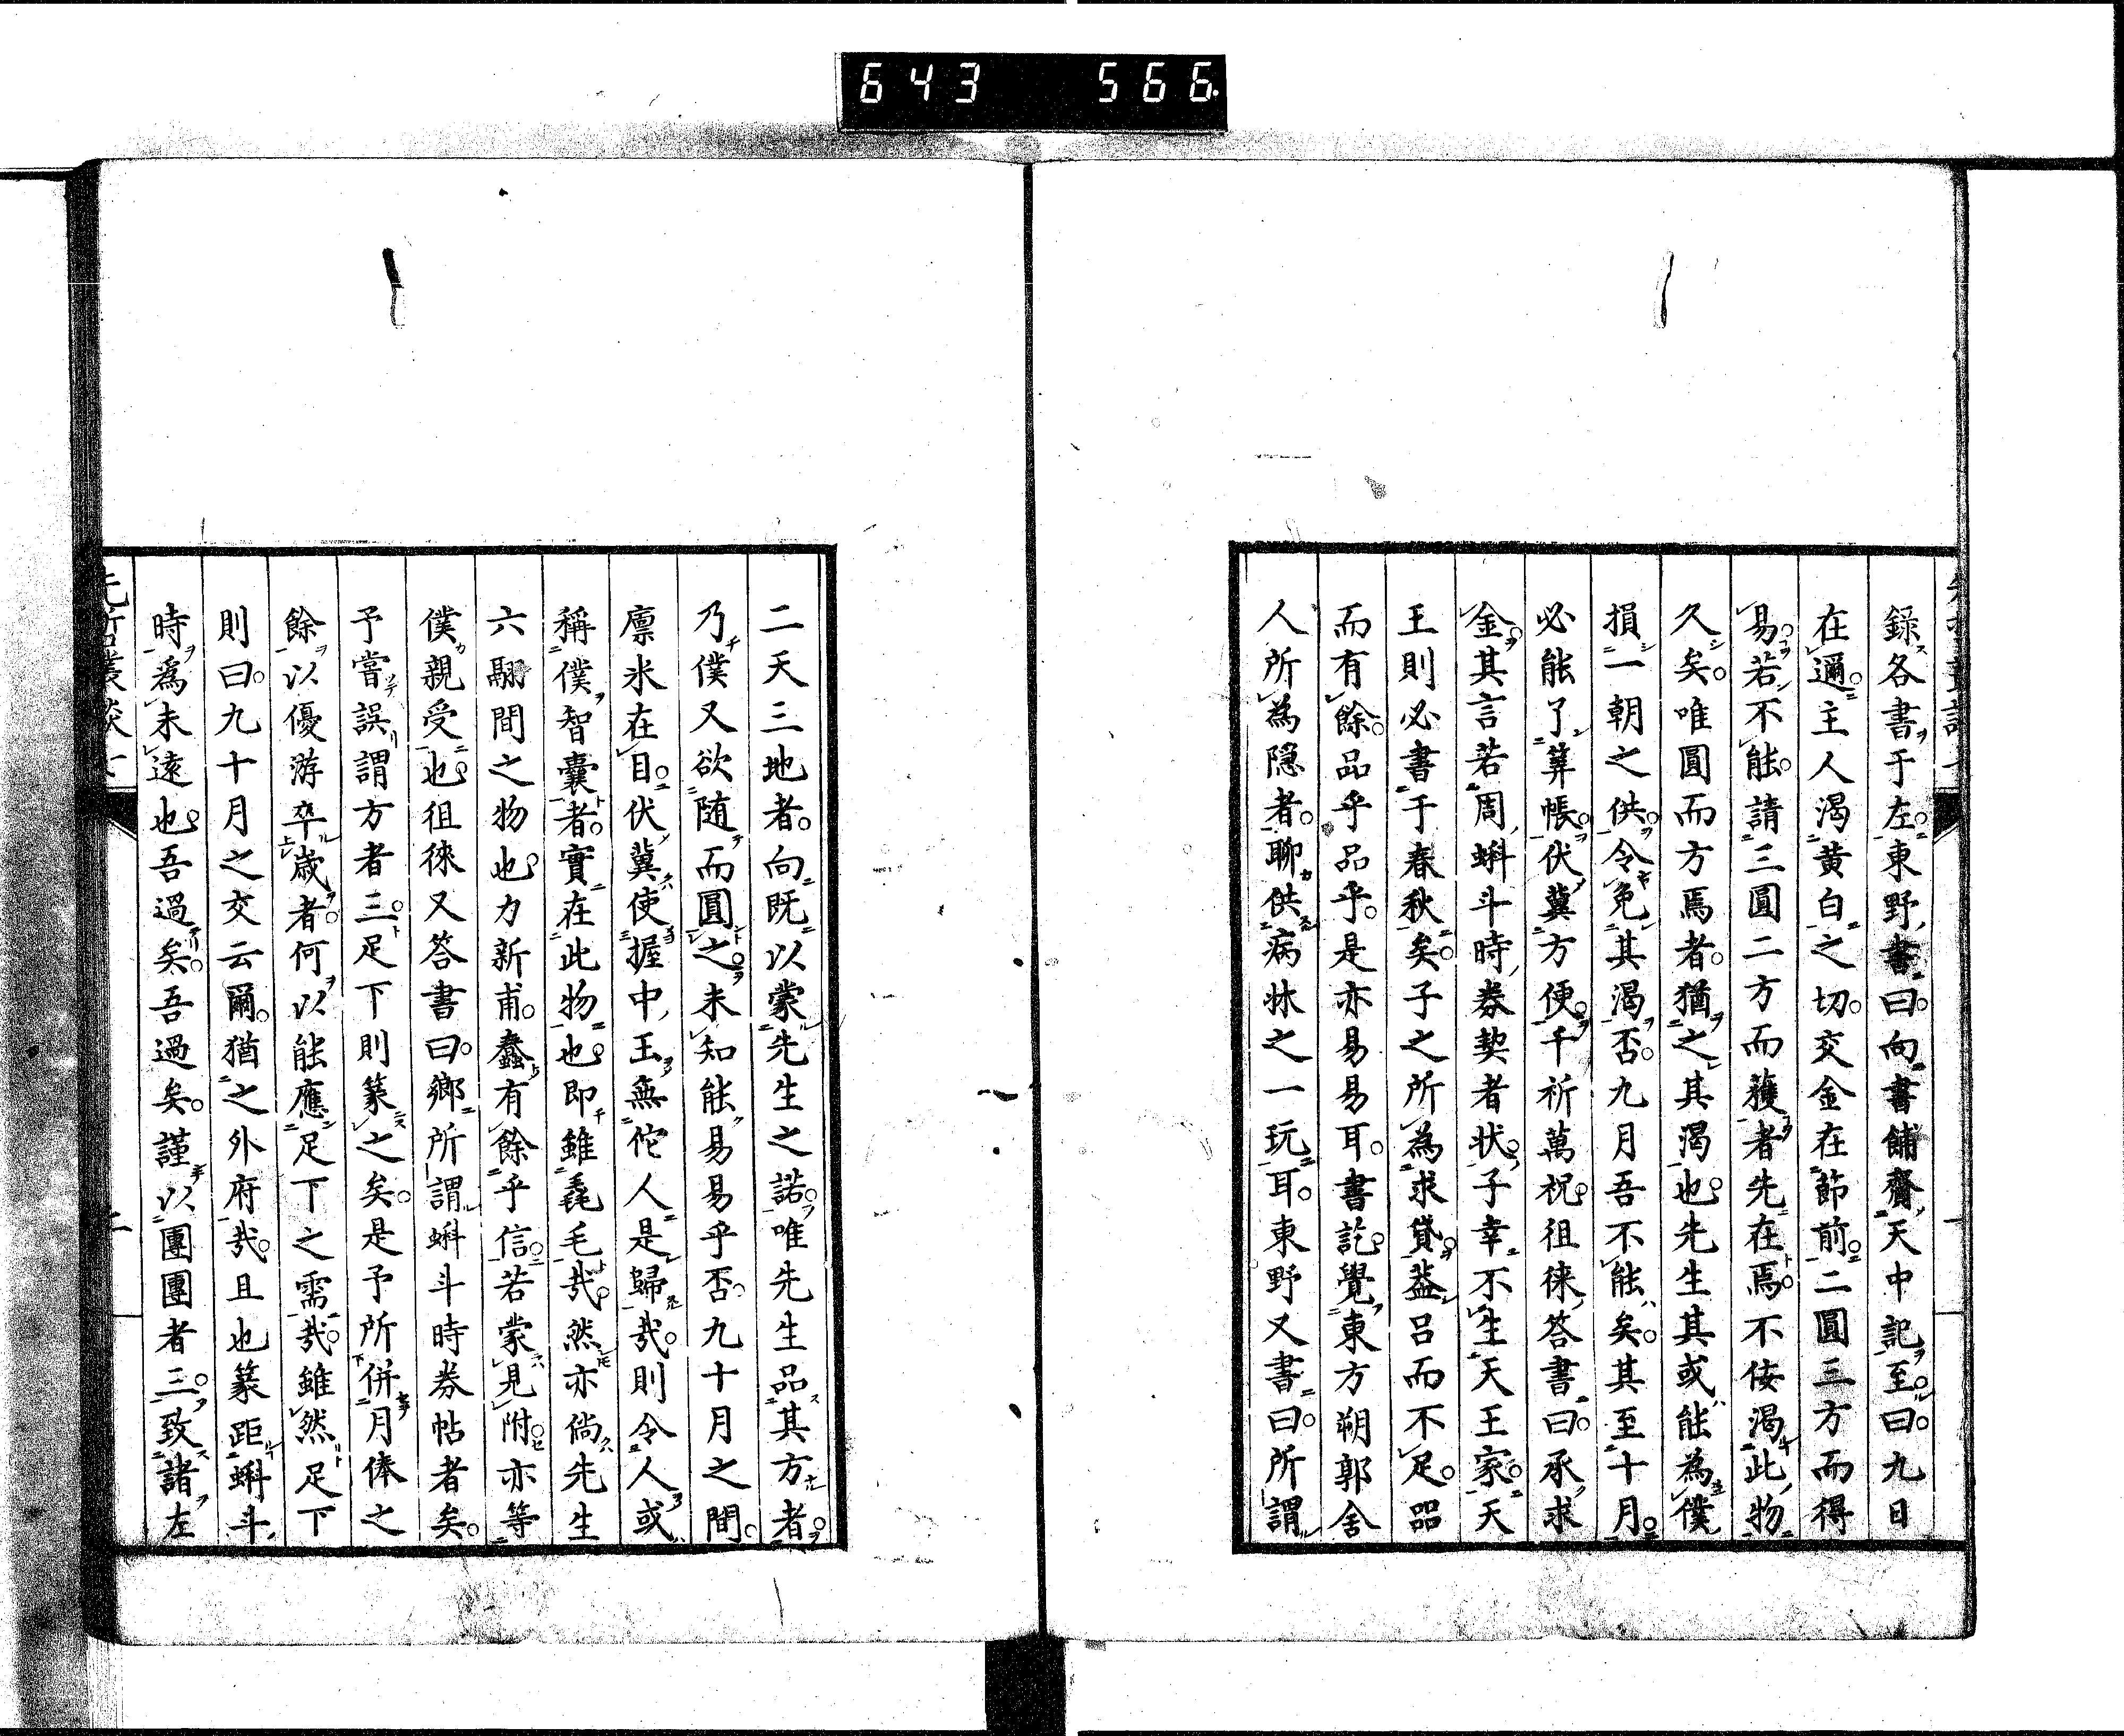 643 566.
錄各書于左東野書曰向書舗齎天中記至曰九日
在邇主人渴黄白之切交金在節前二圓三方而得
易若不能請三圓二方而獲者先在焉不佞渴此物
久矣唯圓而方焉者猶之其渴也先生其或能為僕
損一朝之供令免其渴否九月吾不能矣其至十月
必能了葬帳伏冀方便千祈萬祝徂徠答書曰承求
金其言若周蝌斗時券契者狀子幸不生天王家天
王則必書于春秋矣子之所為求貸葢呂而不足品
而有餘品乎品乎是亦易易耳書訖覺東方朔郭舍
人所為隠者聊供病牀之一玩耳東野又書曰所謂
二天三地者向既以蒙先生之諾唯先生品其方者
乃僕又欲随而圓之未知能易易乎否九十月之間
廪米在目伏冀使握中王無佗人是歸㢤則令人或
稱僕智囊者實在此物也即雖毳毛㢤然亦倘先生
六翮間之物也力新甫蠢有餘乎信若蒙見附亦等
僕親受也徂徠又答書曰鄉所謂蝌斗時券帖者矣
予嘗誤謂方者三足下則篆之矣是予所併月俸之
餘以優游卒歳者何以能應足下之需㢤雖然足下
則曰九十月之交云爾猶之外府㢤且也篆距蝌斗
時爲未遠也吾過矣吾過矣謹以團團者三致諸左